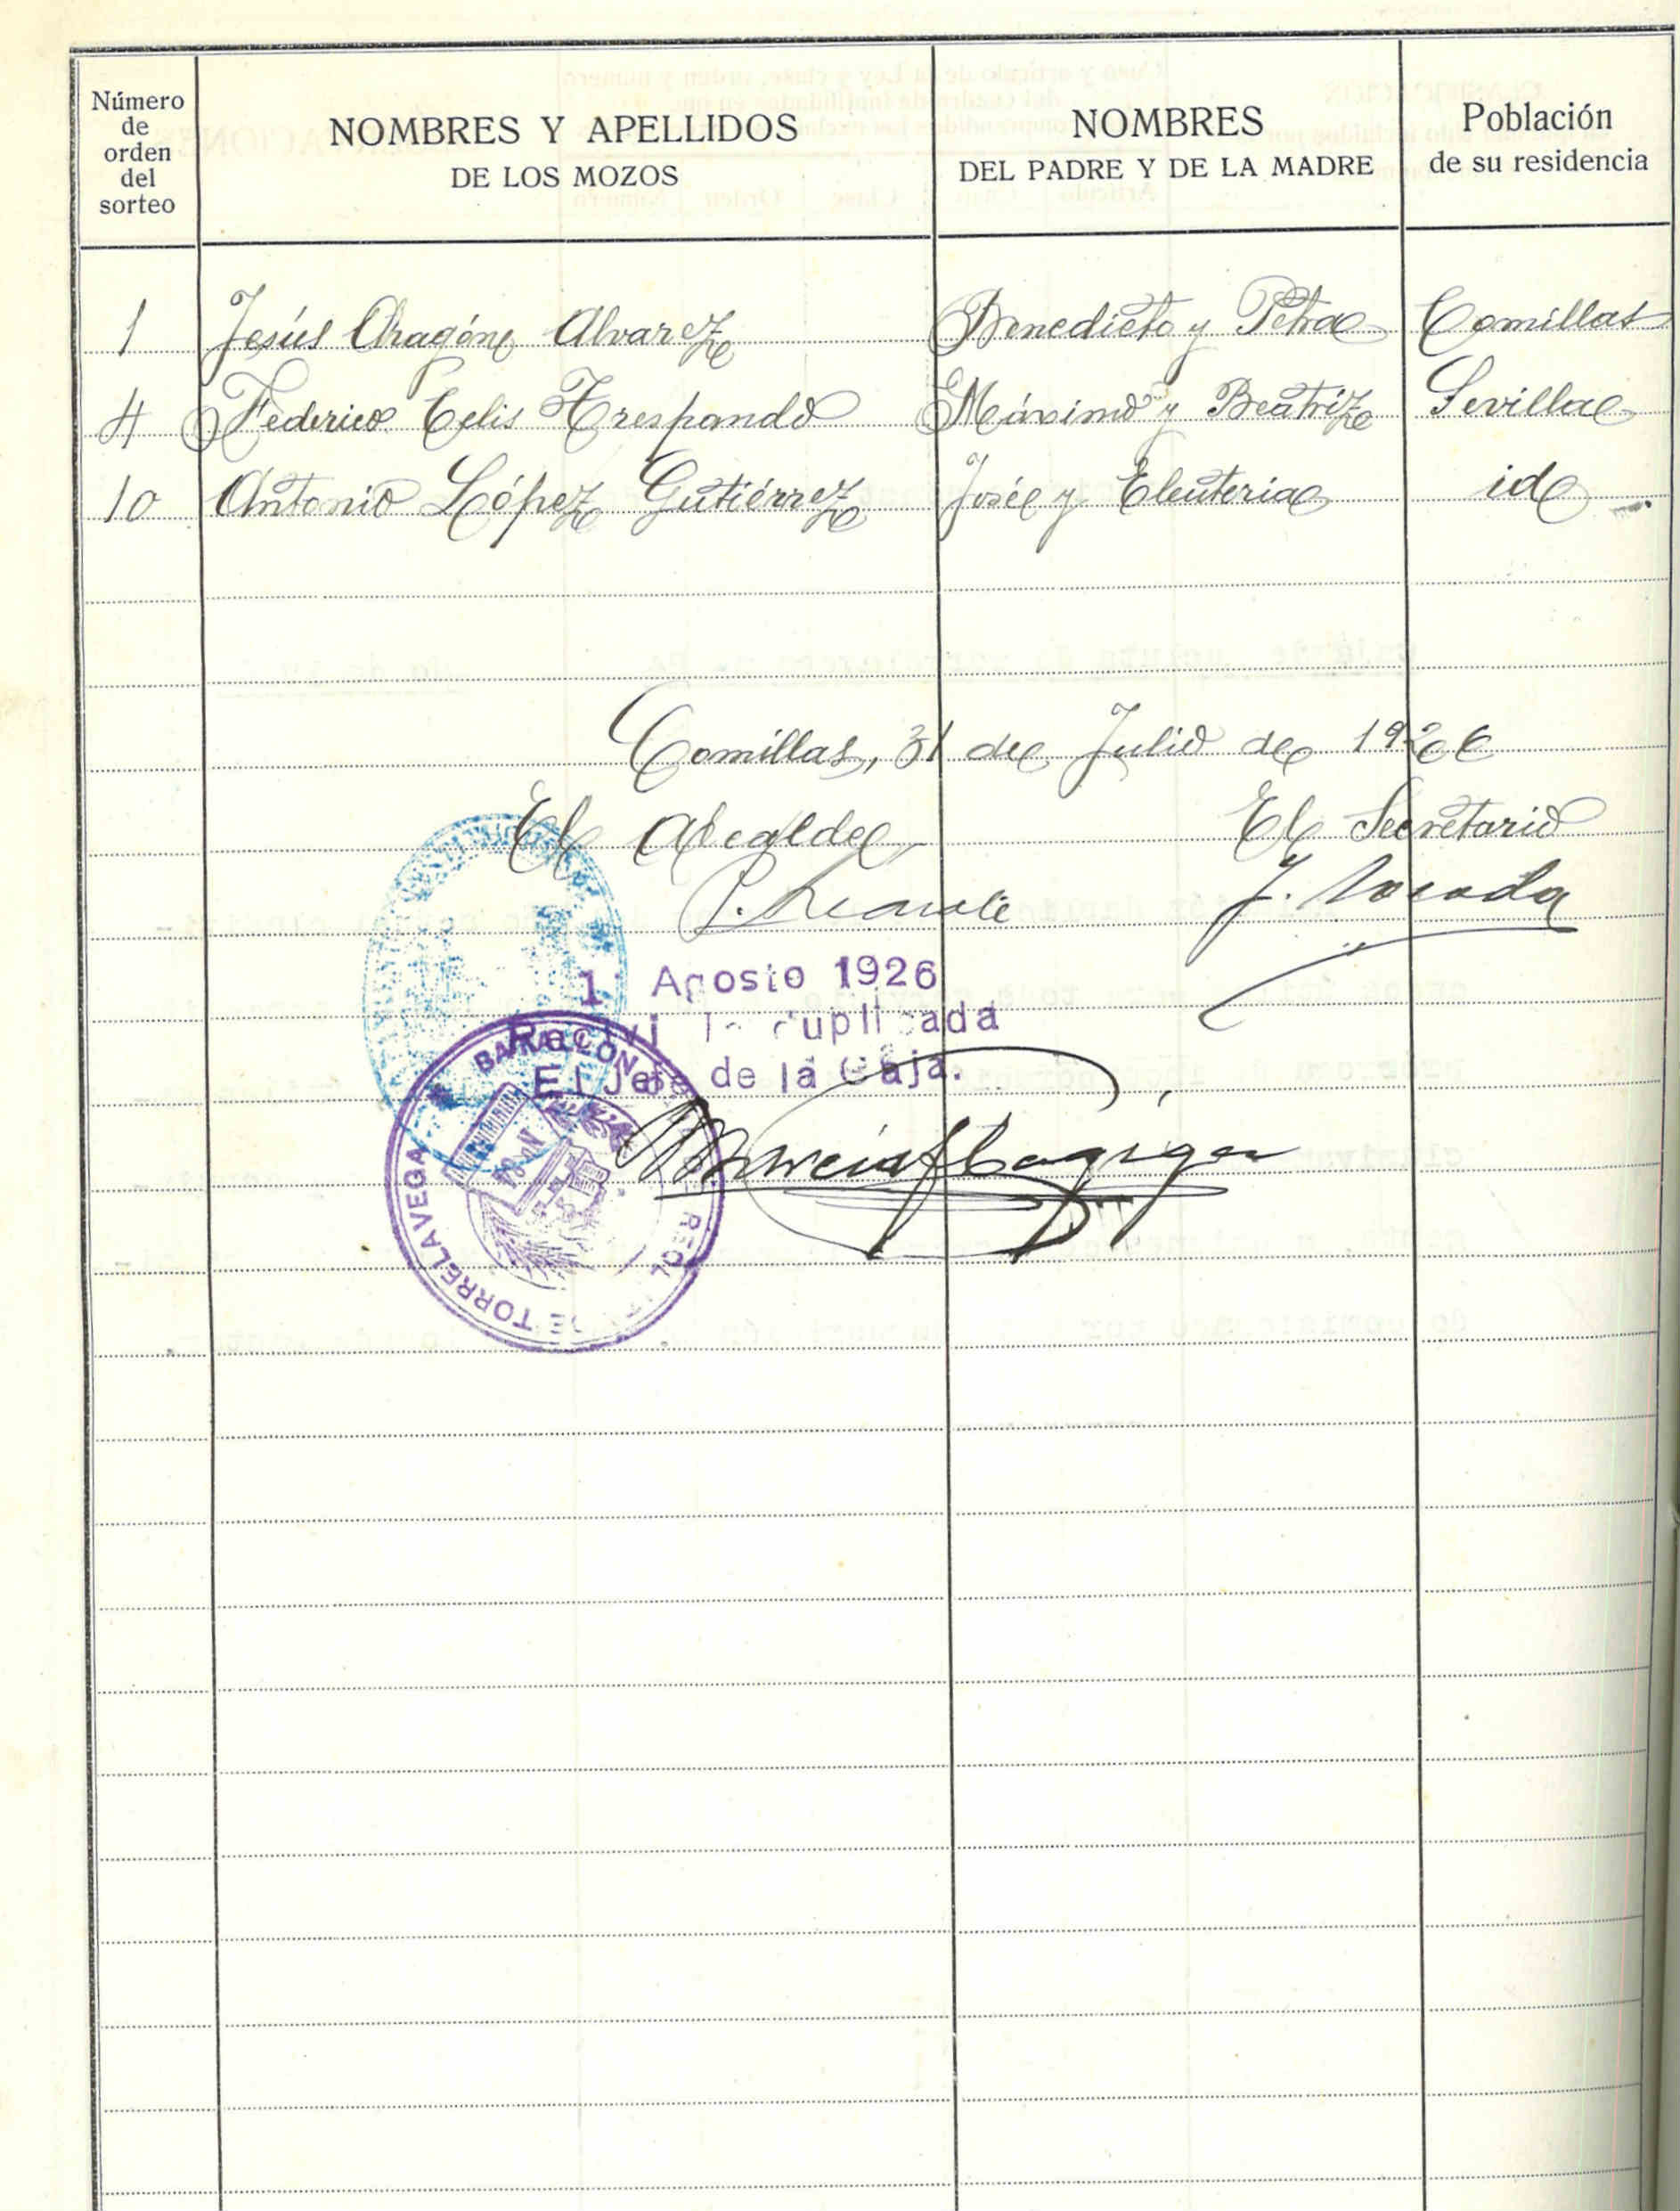 Número de orden del sorteo
NOMBRES Y APELLIDOS DE LOS MOZOS
NOMBRES DEL PADRE Y DE LA MADRE
Población de su residencia
1 Jesús Aragón Alvarez Benedicto y Petra Comillas
4 Federico Celis Trespando Máximo y Beatriz Sevilla
10 Antonio López Gutiérrez José y Eleuteria id
Comillas, 31 de Julio de 1926
El Alcalde El Secretario
P. J.
1 Agosto 1926
Recivi la duplicada
El Jefe de la Caja.
BATALLON TORRELAVEGA